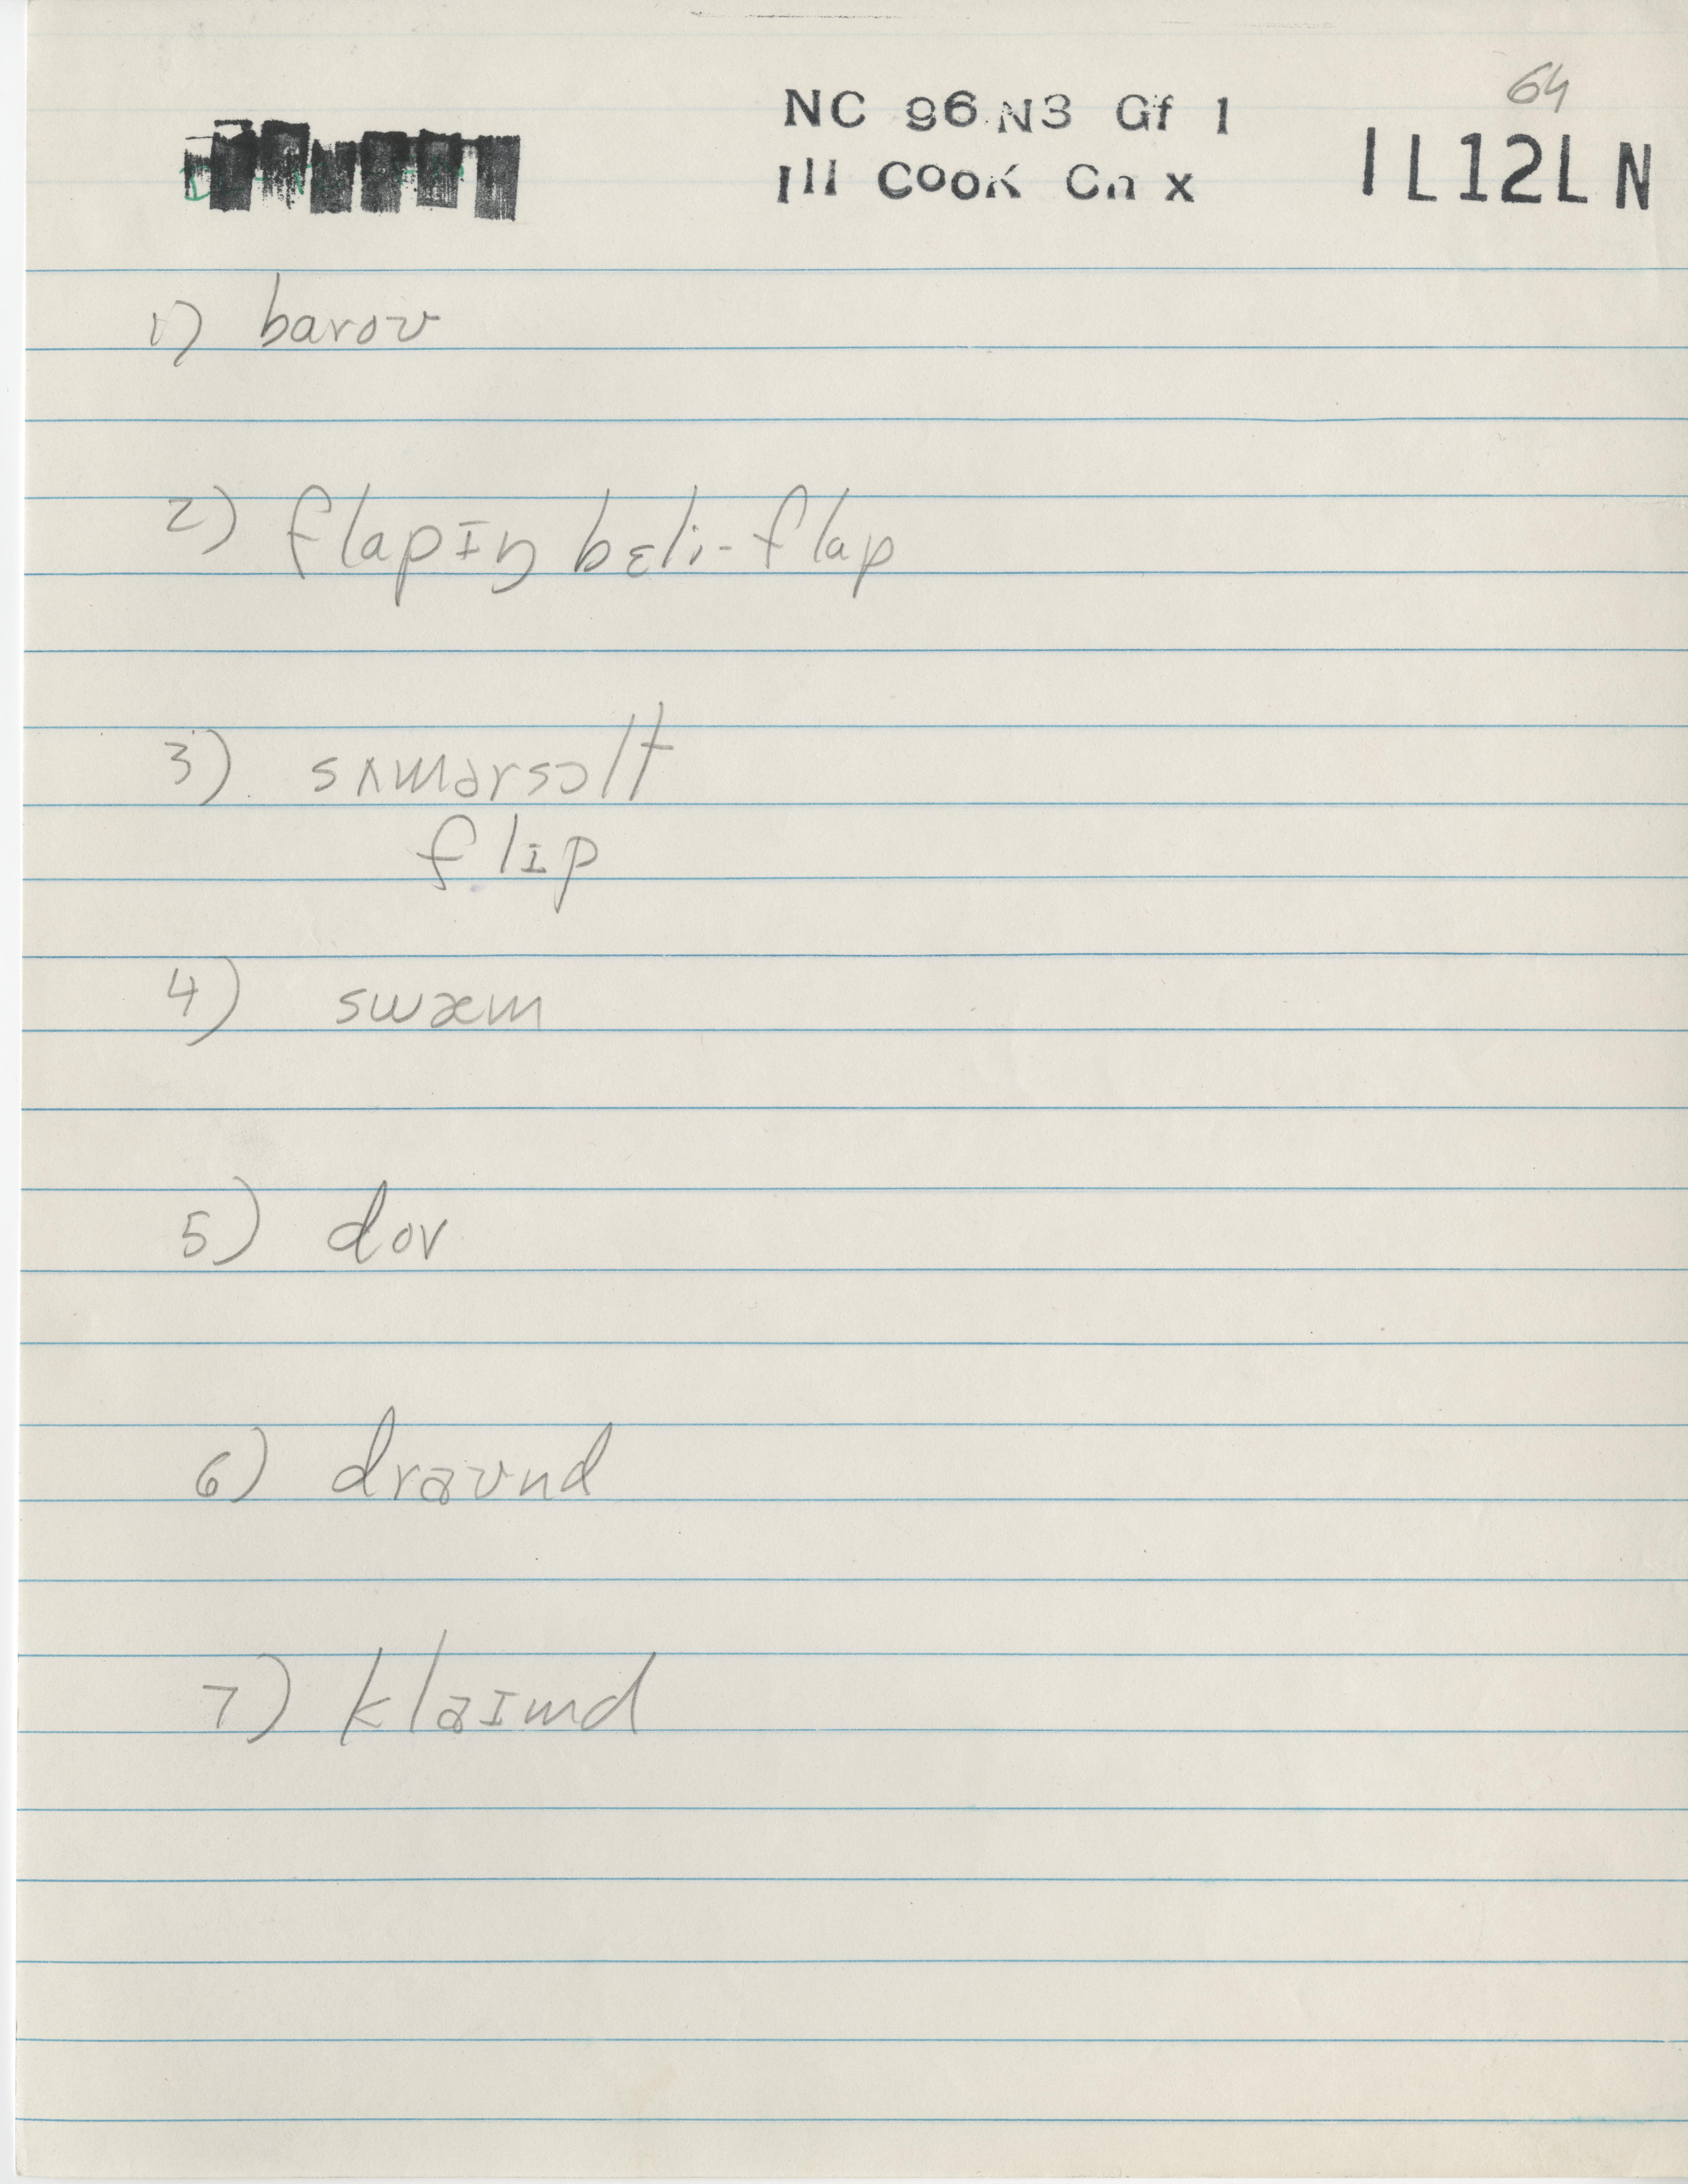 64
NC 96 N3 Gf 1
Ill Cook Cn x
IL12LN
1) baroʊ
2) flapɪŋ bɛli-flap
3) sʌmərsɔlt
flɪp
4) swæm
5) dov
6) draʊnd
7) klaɪmd